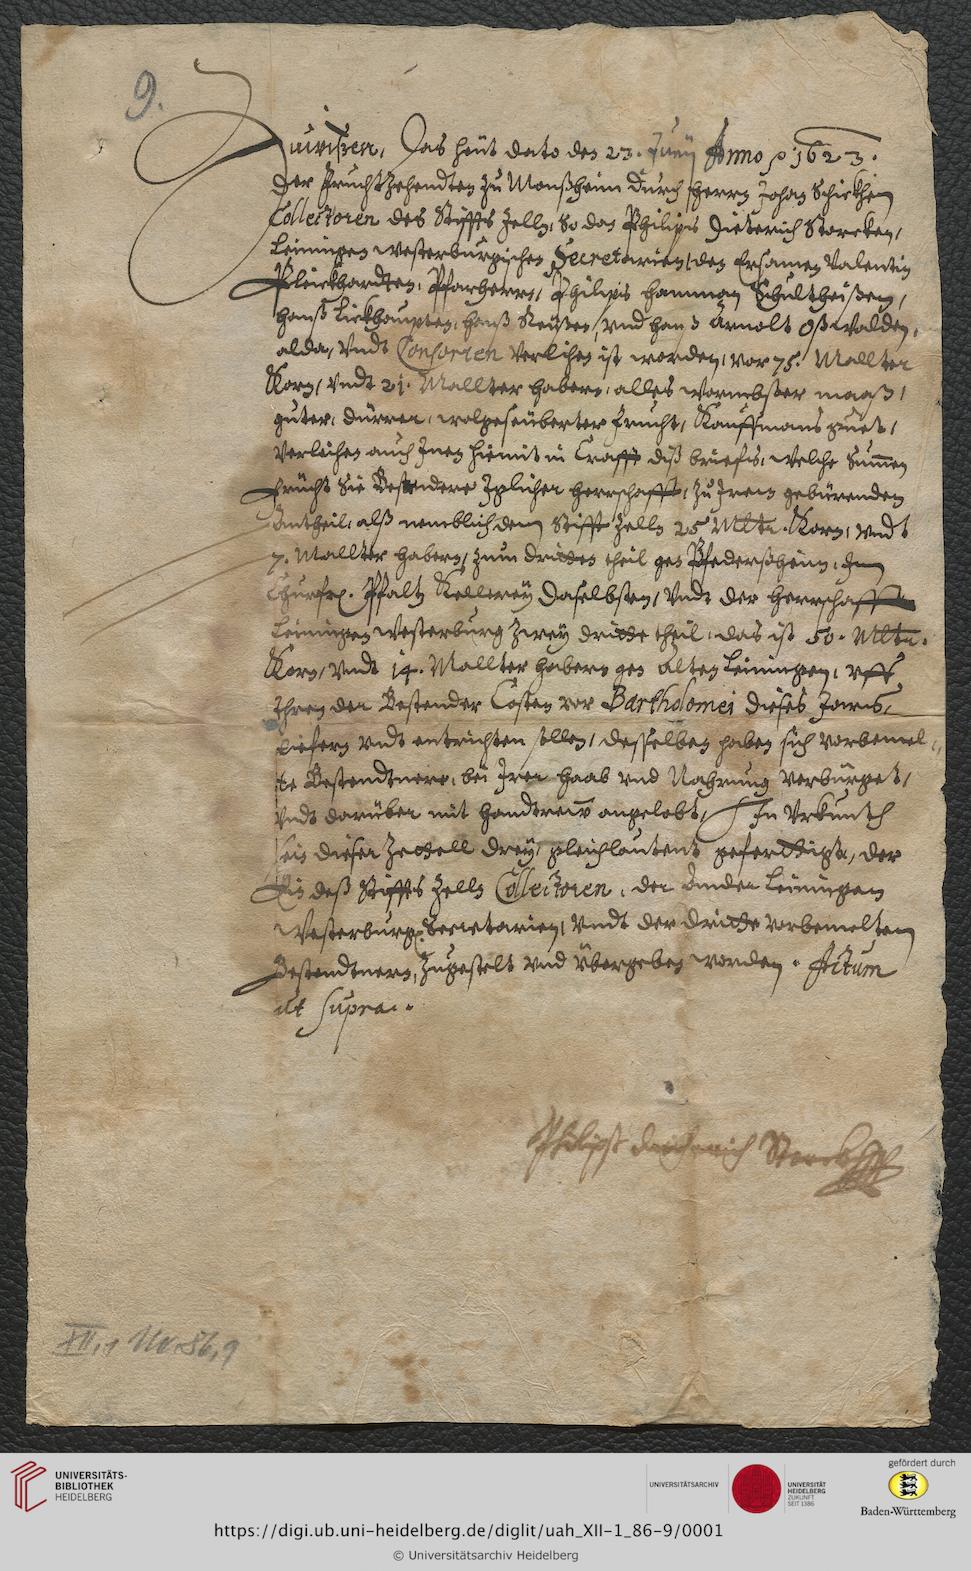 9.
Zuwißen, Das heüt dato den 23. Juny Anno p 1623.
der Frucht Zehendten zu Monßheim durch herrn Johan Schickhen
Collectoren des Stiffts Zelln, So dan Philips Dieterich Storcken,
Leiningen Westerburgischen Secretarien, den Ersamen Valentin
Pleickhardten, Pfarherrn, Philips hamman Schultheißen,
hanß Lickhaupten, hanß Reußen, vnd hanß Arnolt Oßwalden,
alda, Vndt Consorten verlihen ist worden, vor 75. Mallter
Korn, Vndt 21. Mallter habern, alles wormbßer maaß,
guter, dürrer, wolgeseüberter Frucht, Kauffmans guet,
Verleihen auch Inen hiemit in Crafft diß briefs, welche Summen
Frücht Sie Bestendere Jglicher herrschafft, zu Irem gebürenden
Antheil, alß nemblich dem Stifft Zelln 25 Mltr. Korn, vndt
7. Mallter habern, zum dritten theil gen Pfederßheim, Inn
Churfr. Pfaltz Kellerey daselbsten, Vndt der herrschafft
Leiningen Westerburg zwey dritte theil, das ist 50. Mltr.
Korn, Vndt 14. Mallter habern gen Alten Leiningen, vff
Ihren der Bestender Costen vor Bartholomei dieses Jares,
liefern vndt entrichten sollen, desselben haben sich vorbemel-
te Bestendtnere, bei Irer haab vnd Nahrung verbürget,
Vndt darüber mit handtrew angelobt, In Vrkunth
sein dieser Zettell drey, gleichlautent gefertigt, der
Ein deß Stiffts Zelln Collectoren, der Ander Leiningen
Westerburg. Secretarien, Vndt der dritte vorbemelten
Bestendtnern, Zugestelt vnd übergeben worden. Actum
ut supra.
Philipß Dietherich Storckh
XII,1 Nr. 86,9
UNIVERSITÄTS-
BIBLIOTHEK
HEIDELBERG
UNIVERSITÄTSARCHIV
UNIVERSITÄT
HEIDELBERG
ZUKUNFT
SEIT 1386
gefördert durch
Baden-Württemberg
https://digi.ub.uni-heidelberg.de/diglit/uah_XII-1_86-9/0001
© Universitätsarchiv Heidelberg